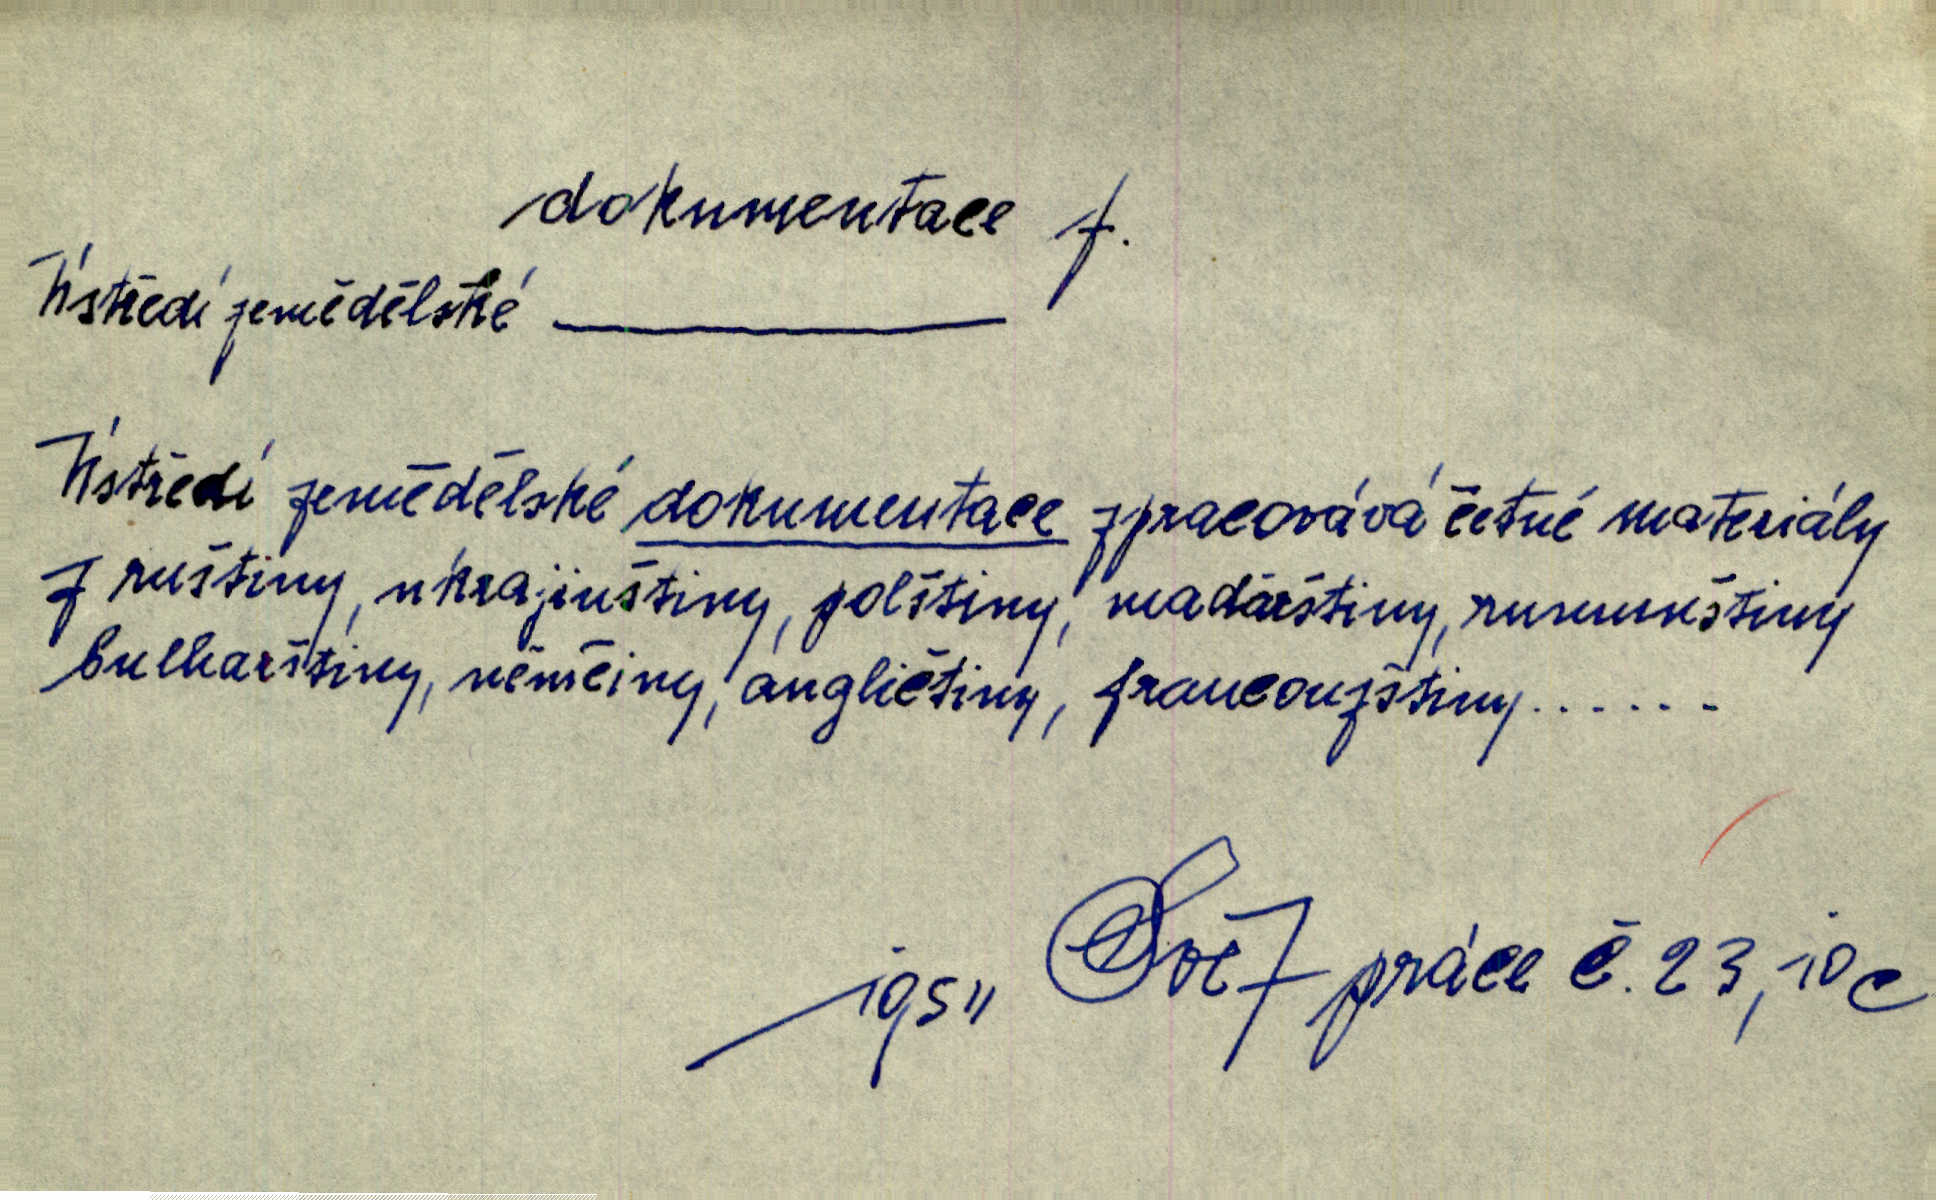 dokumentace f.
Ústředí zemědělské ————
Ústředí zemědělské dokumentace zpracovává četné materiály
z ruštiny, ukrajinštiny, polštiny, madarštiny, rumunštiny
bulharštiny, němčiny, angličtiny, francouzštiny......
1951 Soc Z práce č. 23, 10 c